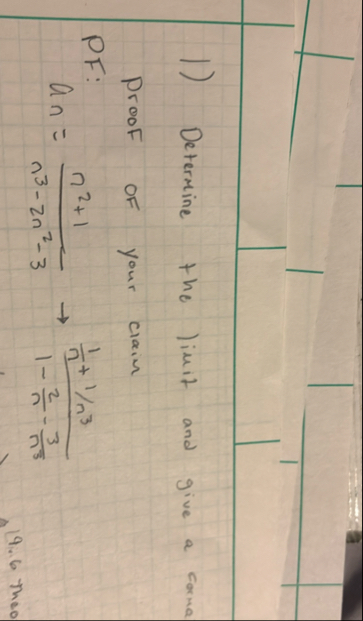 1) Determine the limit and give a
proof of your claim
PF:
an = n²+1 / n³-2n²-3 → 1/n + 1/n³ / 1 - 2/n - 3/n³
19.6